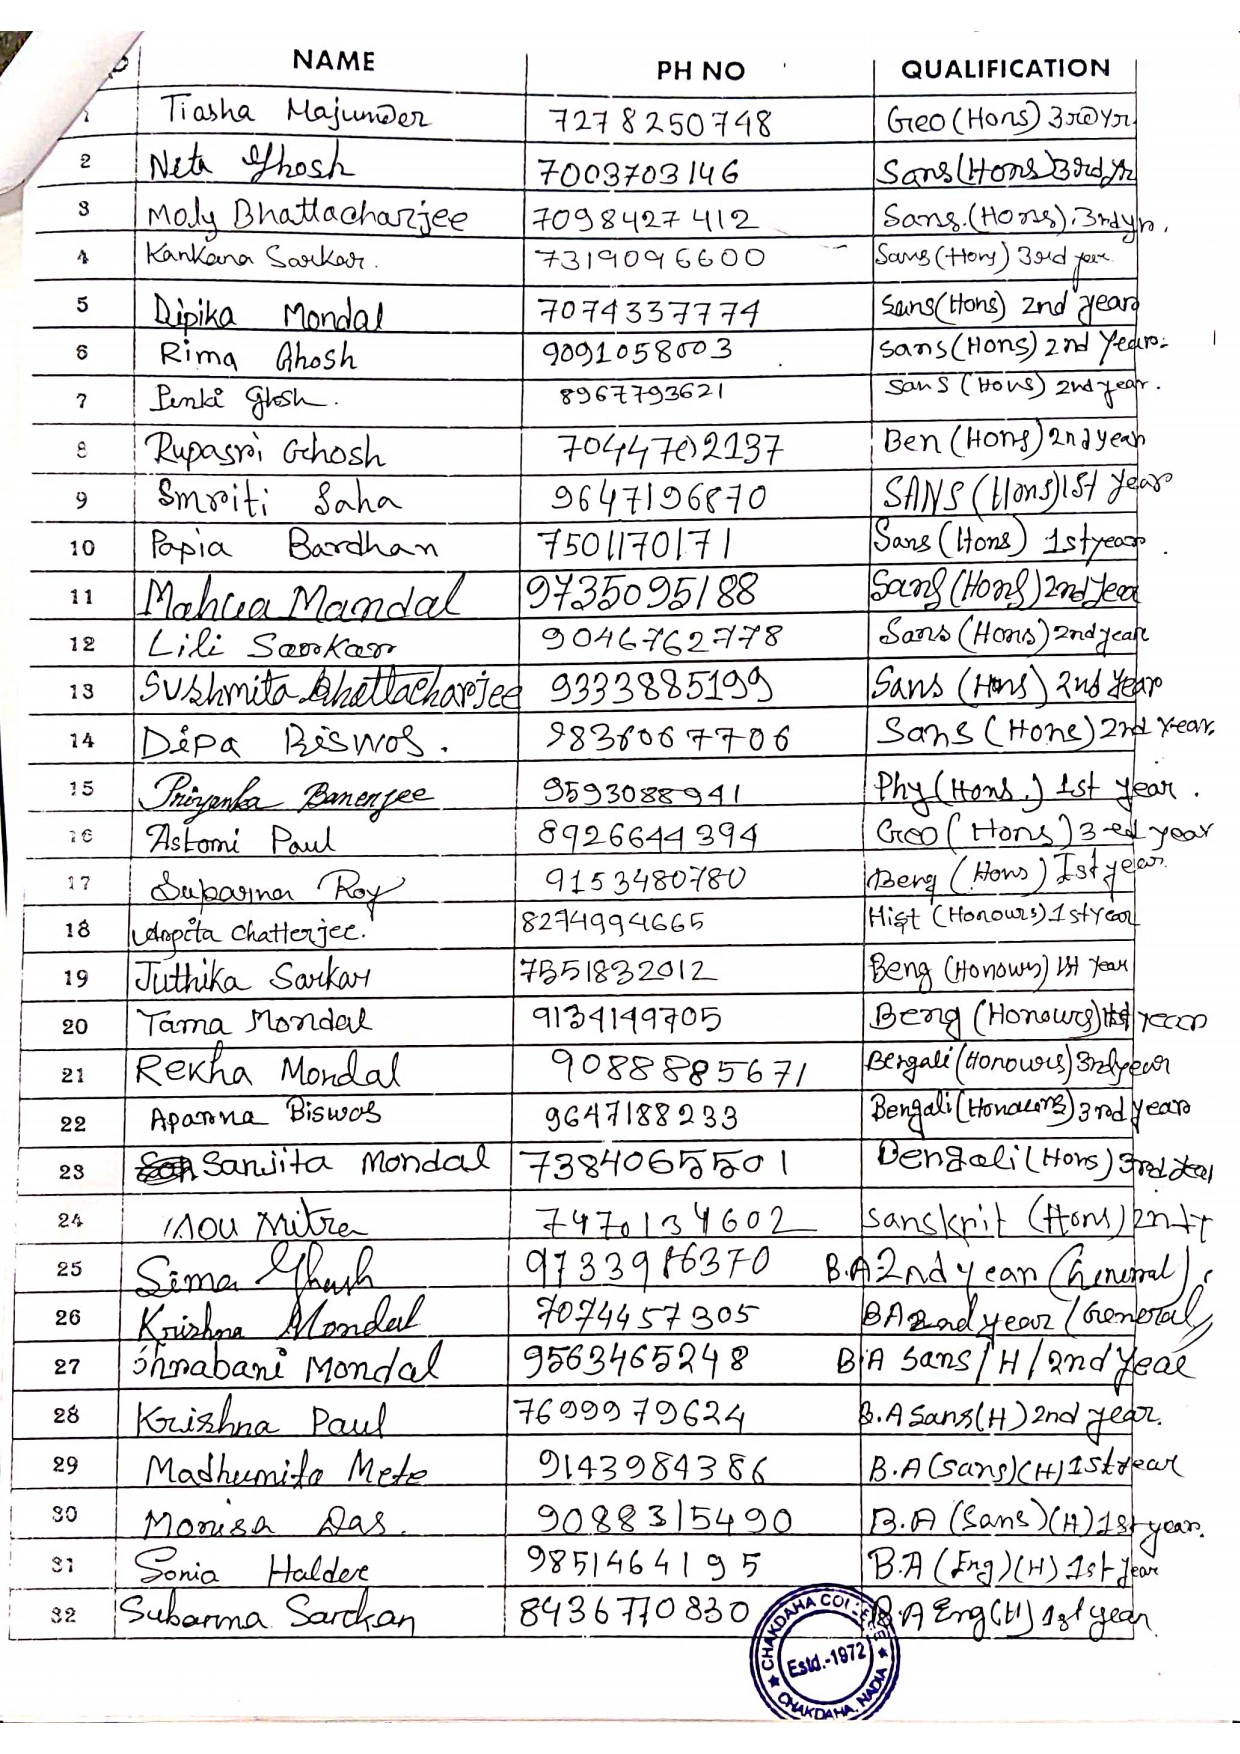 NAME PH NO QUALIFICATION
1 Tiasha Majumder 7278250748 Geo (Hons) 3rd Yr
2 Neta Ghosh 7003703146 Sans (Hons) 3rd yr
3 Moly Bhattacharjee 7098427412 Sans. (Hons). 3rd yr.
4 Kankana Sarkar. 7319096600 Sans (Hons) 3rd year
5 Dipika Mondal 7074337774 Sans (Hons) 2nd year
6 Rima Ghosh 9091058003 Sans (Hons) 2nd Year.
7 Penki Ghosh. 8967793621 Sans (Hons) 2nd year.
8 Rupasri Ghosh 7044702137 Ben (Hons) 2nd year
9 Smriti Saha 9647196870 SANS (Hons) 1st year
10 Papia Bardhan 7501170171 Sans (Hons) 1st year.
11 Mahua Mandal 9735095188 Sans (Hons) 2nd year
12 Lili Sarkar 9046762778 Sans (Hons) 2nd year
13 Sushmita Bhattacharjee 9333885199 Sans (Hons) 2nd year
14 Dipa Biswas. 9836067706 Sans (Hons) 2nd year.
15 Priyanka Banerjee 9593088941 Phy (Hons.) 1st year.
16 Astomi Paul 8926644394 Geo (Hons) 3-ed year
17 Suparna Roy 9153480780 Beng (Hons) Ist year.
18 Arpita Chatterjee. 8274994665 Hist (Honours) 1st Year
19 Juthika Sarkar 7551832012 Beng (Honours) 1st Year
20 Tama Mondal 9134149705 Beng (Honours) 1st year
21 Rekha Mondal 9088885671 Bengali (Honours) 3rd year
22 Aparna Biswas 9647188233 Bengali (Honours) 3rd year
23 Sanjita Mondal 7384065501 Bengali (Hons) 3rd year
24 Mou Mitra 7470134602 Sanskrit (Hons) 2nd Yr
25 Sima Ghosh 9733986370 B.A 2nd year (General)
26 Krishna Mondal 7074457305 BA 2nd year / General
27 Mondal 9563465248 B.A Sans / H / 2nd Year
28 Krishna Paul 7699979624 B.A Sans (H) 2nd year.
29 Madhumita Mete 9143984386 B.A (Sans) (H) 1st year
30 Monisa Das. 9088315490 B.A (Sans) (H) 1st year.
31 Sonia Halder 9851464195 B.A (Eng) (H) 1st year
32 Subarna Sarkar 8436770830 B.A Eng (H) 1st year
CHAKDAHA COLLEGE
Estd.-1972
CHAKDAHA, NADIA